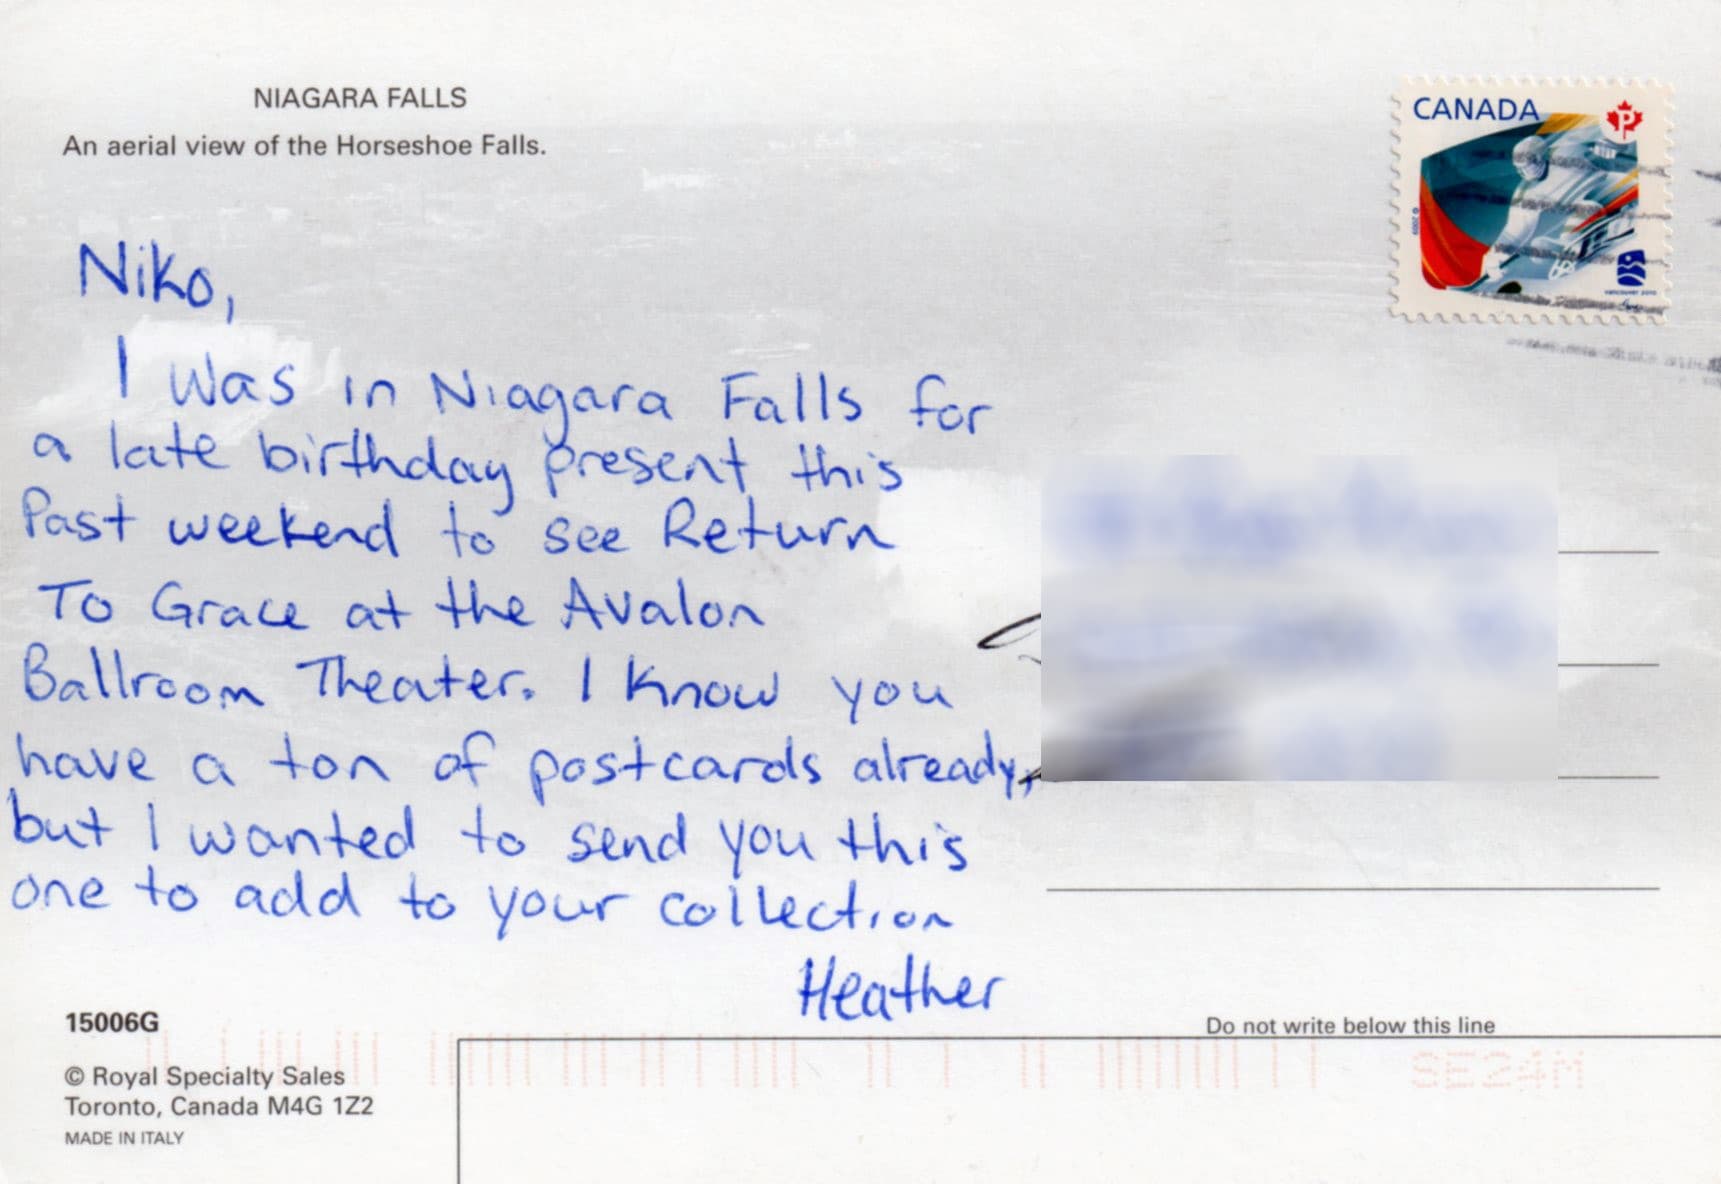 NIAGARA FALLS
An aerial view of the Horseshoe Falls.
CANADA
P
© 2009
vancouver 2010
Niko,
I was in Niagara Falls for
a late birthday present this
Past weekend to see Return
To Grace at the Avalon
Ballroom Theater. I know you
have a ton of postcards already,
but I wanted to send you this
one to add to your collection
Heather
15006G
© Royal Specialty Sales
Toronto, Canada M4G 1Z2
MADE IN ITALY
Do not write below this line
SE24M